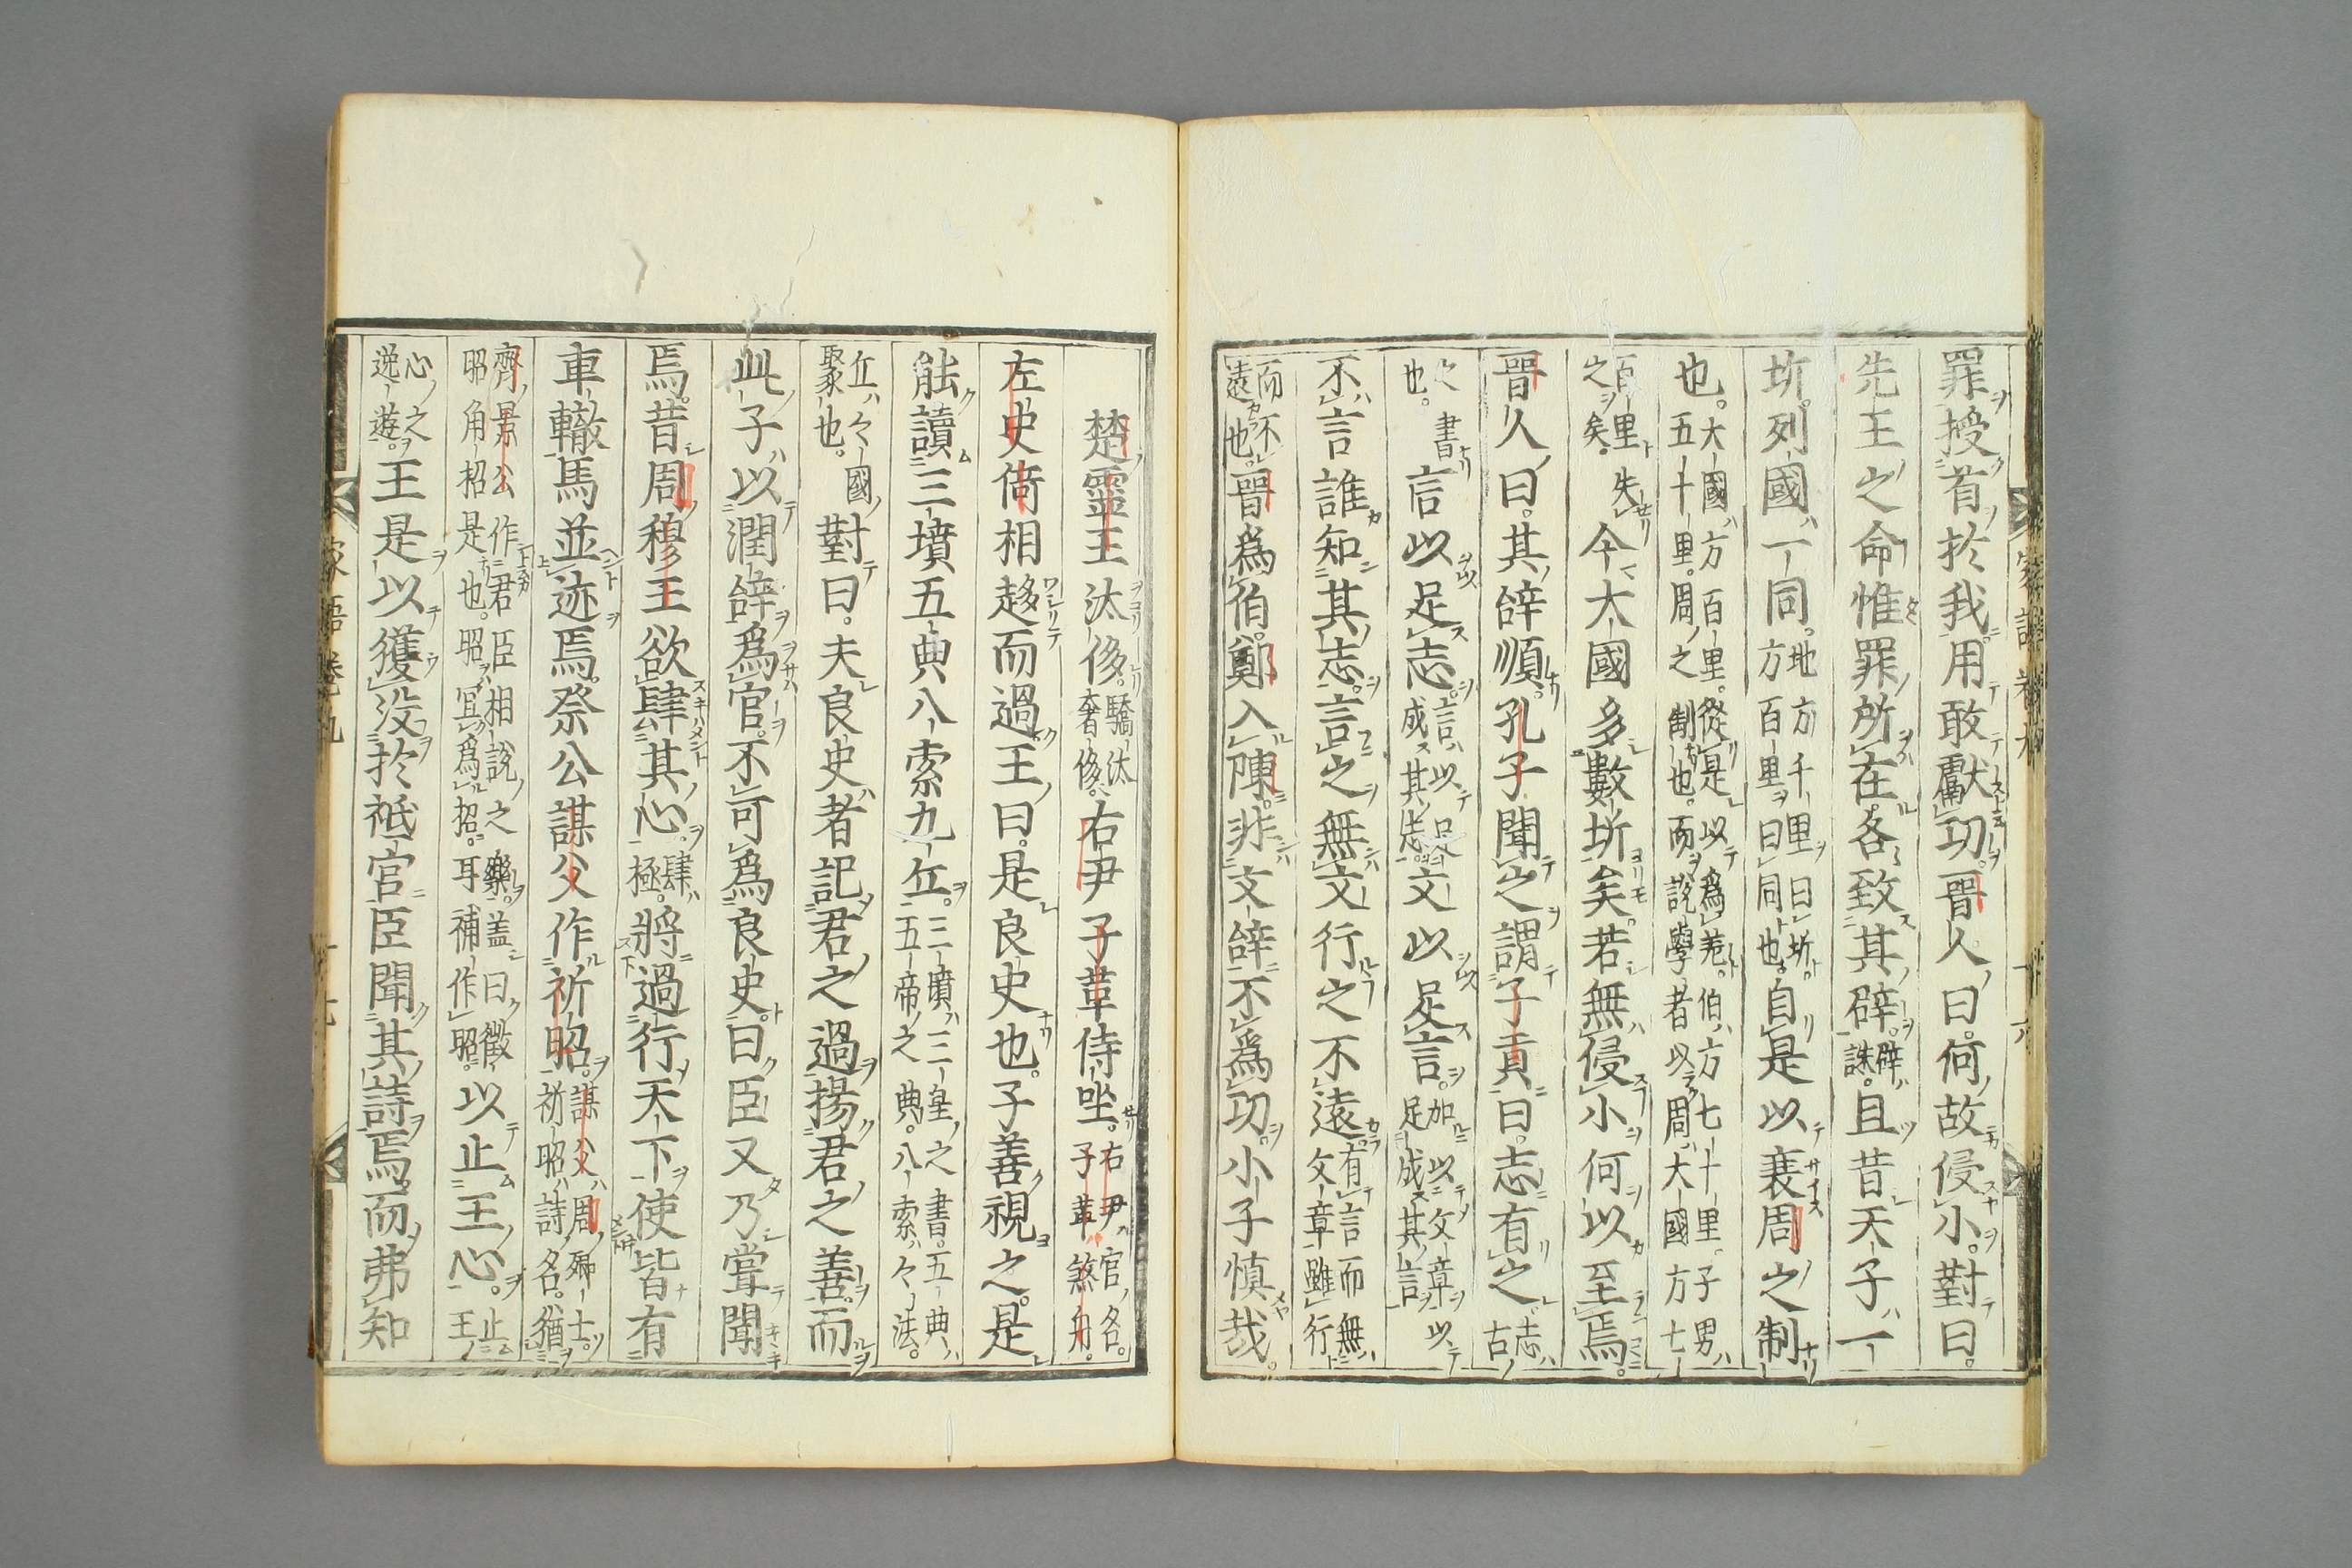 罪授首於我用敢獻功晋人曰何故侵小對曰
先王之命惟罪所在各致其辟辟誅且昔天子一
圻列國一同地方千里曰圻方百里曰同也自是以衰周之制
也大國方百里從是以爲差伯方七十里子男五十里周之制也而說學者以周大國方七
百里失之矣今大國多數圻矣若無侵小何以至焉
晋人曰其辞順孔子聞之謂子貢曰志有之志古
之書也言以足志言以足成其志文以足言加以文章以足成其言
不言誰知其志言之無文行之不遠有言而無文章雖行
而不遠也晋爲伯鄭入陳非文辞不爲功小子慎哉
楚靈王汰侈驕汰奢侈右尹子革侍坐右尹官名子革煞舟
左史倚相趍而過王曰是良史也子善視之是
能讀三墳五典八索九丘三墳三皇之書五典五帝之典八索々法
丘々國聚也對曰夫良史者記君之過揚君之善而
此子以潤辞爲官不可爲良史曰臣又乃嘗聞
焉昔周穆王欲肆其心肆極將過行天下使皆有
車轍馬並迹焉祭公謀父作祈昭謀父周卿士祈昭詩名猶
齊景公作君臣相說之樂蓋曰徵招角招是也昭冥爲招耳補作昭以止王心止王
心之逸遊王是以獲没於祇官臣聞其詩焉而弗知